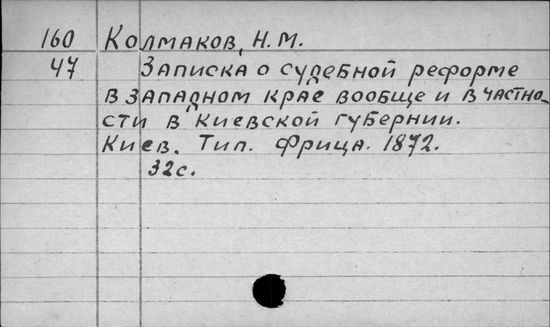 160 Колмаков, Н.М.
47 Записка о судебной реформе
в западном крае вообще и в частно-
сти в Киевской губернии.
Киев. Тип. Фрица. 1872.
32с.